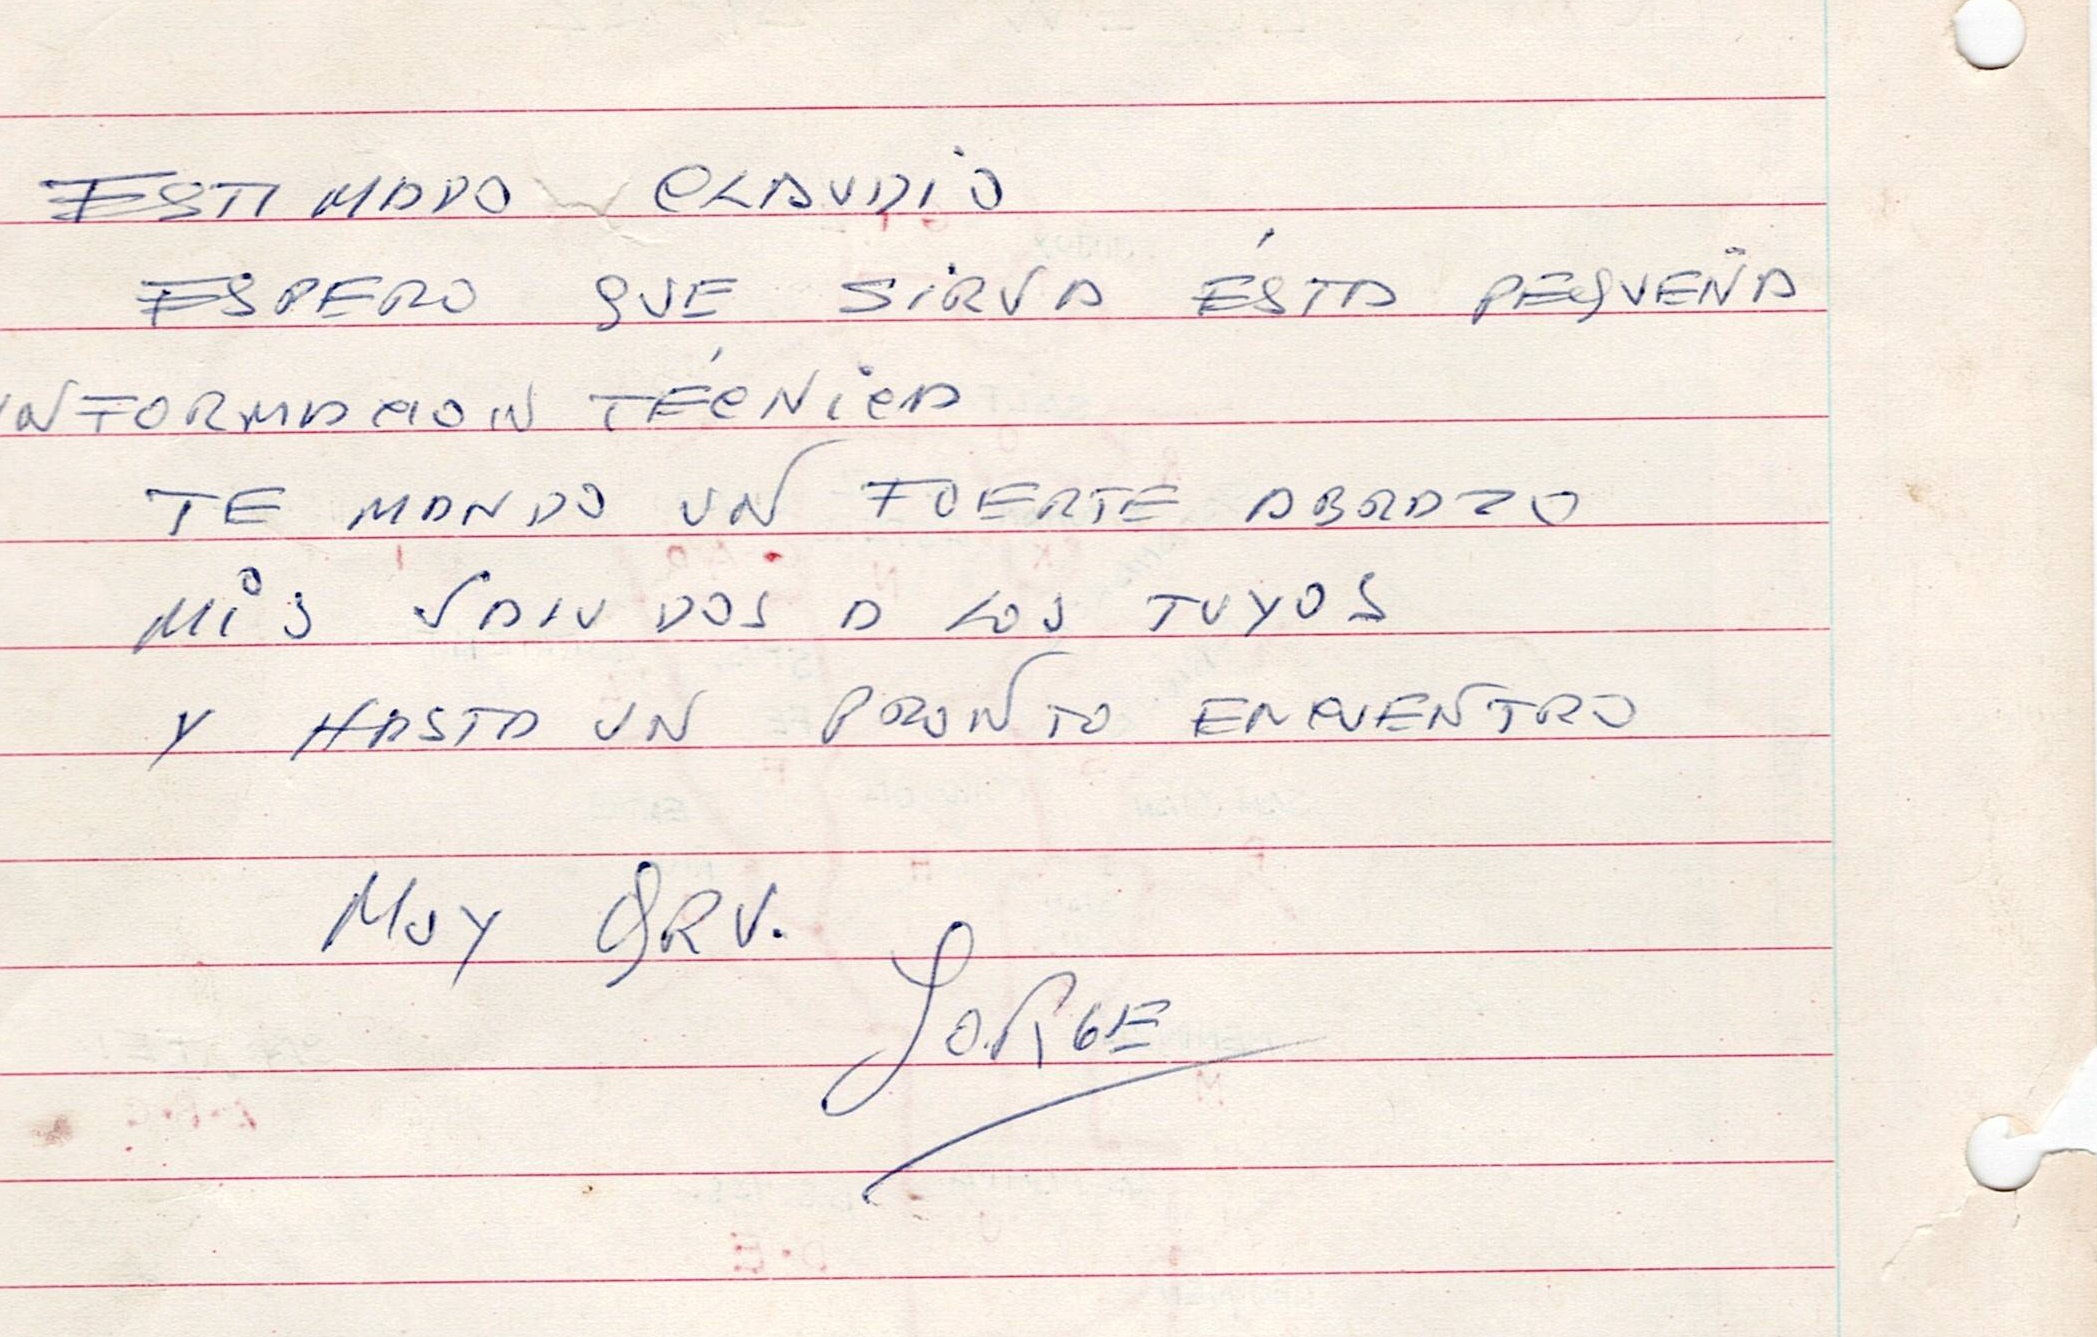 ESTIMADO CLAUDIO
ESPERO QUE SIRVA ÉSTA PEQUEÑA
INFORMACION TÉCNICA
TE MANDO UN FUERTE ABRAZO
MIS SALUDOS A LOS TUYOS
Y HASTA UN PRONTO ENCUENTRO
MUY QRV.
JORGE